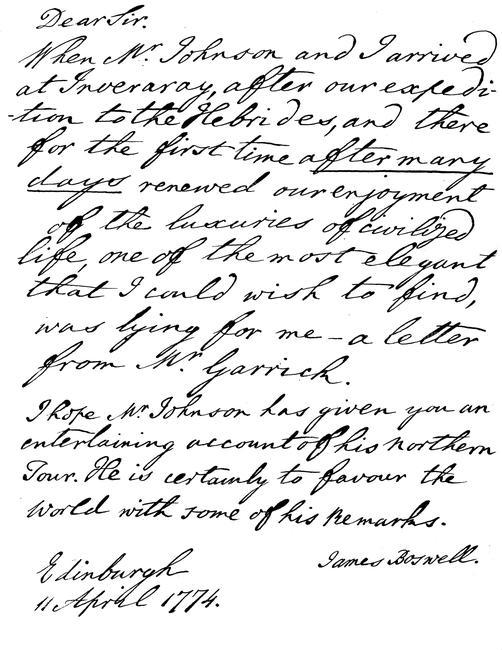 Dear Sir.
When Mr Johnson and I arrived
at Inveraray, after our expedi-
-tion to the Hebrides, and there
for the first time after many
days renewed our enjoyment
of the luxuries of civilized
life, one of the most elegant
that I could wish to find,
was lying for me - a letter
from Mr. Garrick.
I hope Mr Johnson has given you an
entertaining account of his Northern
Tour. He is certainly to favour the
World with some of his Remarks.
James Boswell.
Edinburgh
11 April 1774.